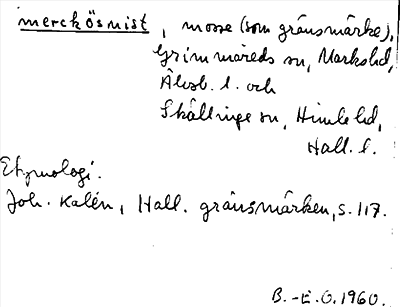 merckösmist, mosse (som gränsmärke),
Grimmareds sn, Marks hd,
Älvsb. l. och
Skällinge sn, Himle hd,
Hall. l.
Etymologi.
Joh. Kalén, Hall. gränsmärken, s. 117.
B.-E. O. 1960.